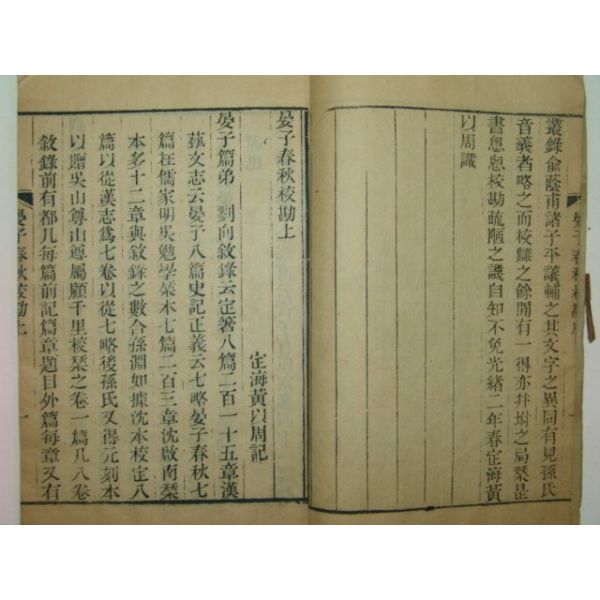 叢錄俞蔭甫諸子平議輔之其文字之異同有見孫氏
音義者略之而校讎之餘閒有一得亦幷坿之局栞是
書悤悤校勘疏陋之譏自知不免光緒二年春定海黃
以周識
晏子春秋校勘上
定海黃以周記
晏子篇弟 劉向敘錄云定箸八篇二百一十五章漢
蓺文志云晏子八篇史記正義云七略晏子春秋七
篇在儒家明吳勉學栞本七篇二百三章沈啟南栞
本多十二章與敘錄之數合孫淵如據沈本校定八
篇以從漢志爲七卷以從七略後孫氏又得元刻本
以贈吳山尊山尊屬顧千里校栞之卷一篇凡八卷
敘錄前有都凡每篇前記篇章題目外篇每章又有
晏子春秋校勘上 一